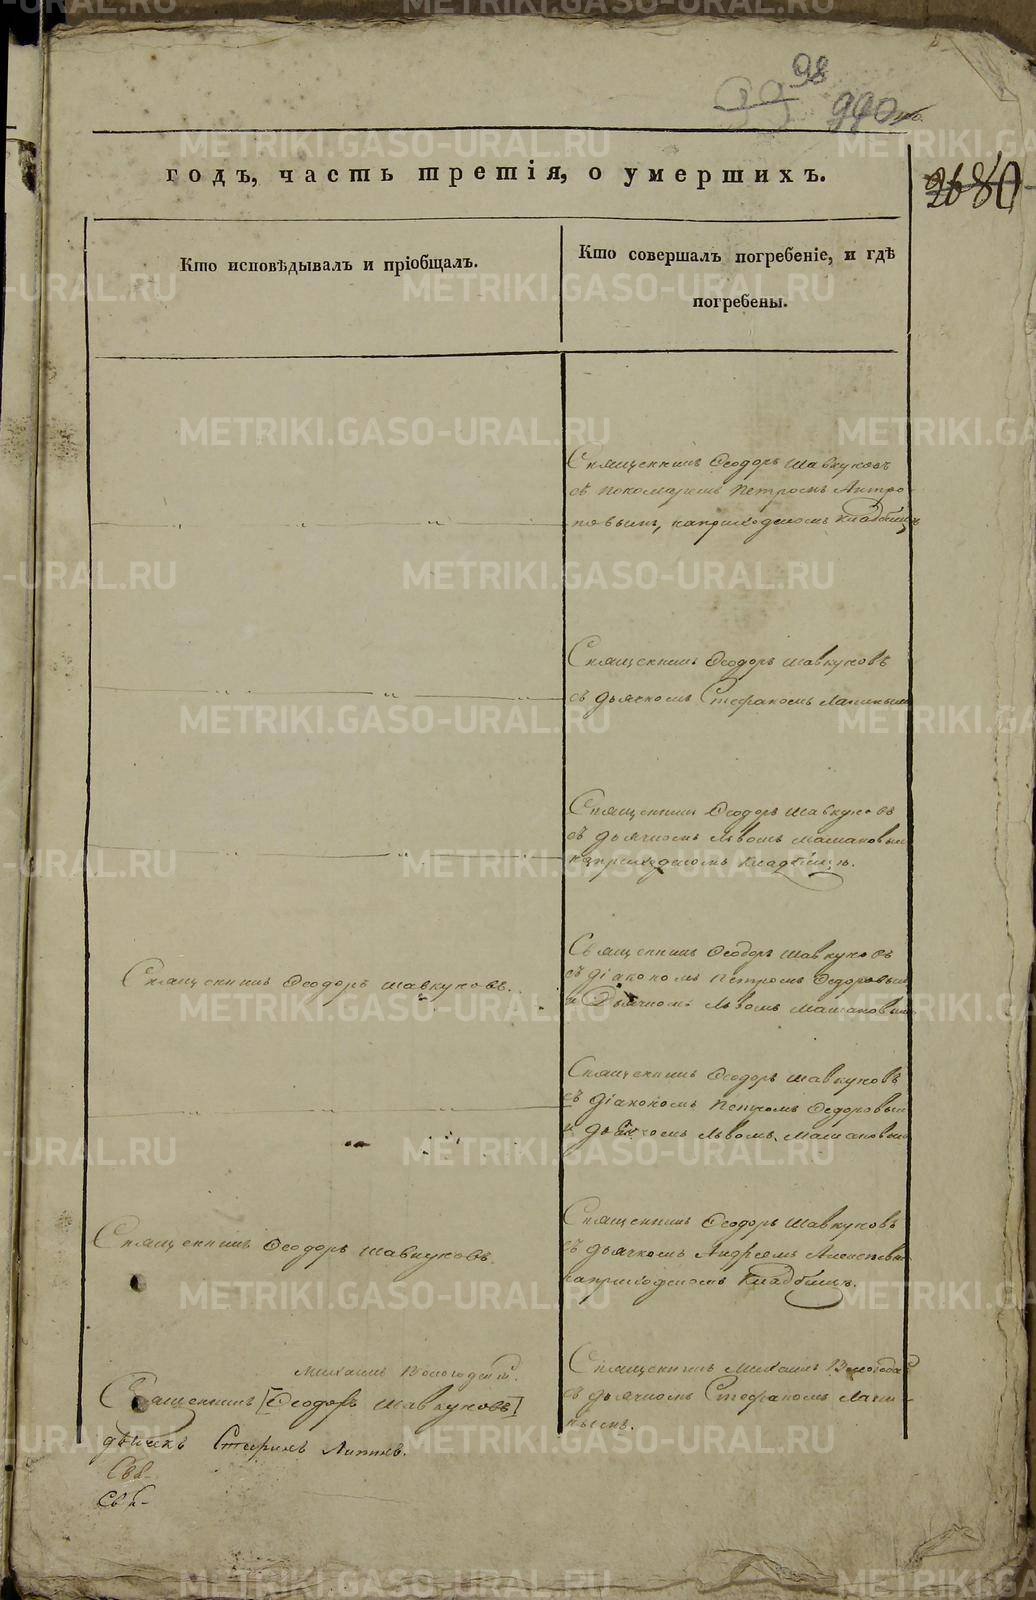 98
99 990
2680
годъ, часть третія, о умершихъ.
Кто исповѣдывалъ и пріобщалъ.
Кто совершалъ погребеніе, и гдѣ
погребены.
Священникъ Ѳеодоръ Шавкуновъ
съ пономаремъ Петромъ Антро-
повымъ, наприходскомъ кладбищѣ
Священникъ Ѳеодоръ Шавкуновъ
съ дьячкомъ Стефаномъ Лапинымъ
Священникъ Ѳеодоръ Шавкуновъ
съ дьячкомъ Львомъ
наприходскомъ кладбищѣ.
Священникъ Ѳеодоръ Шавкуновъ.
Священникъ Ѳеодоръ Шавкуновъ
съ діакономъ Петромъ Ѳедоровым
и Дьячкомъ Львомъ
Священникъ Ѳеодоръ Шавкуновъ
съ діакономъ Петромъ Ѳедоровым
и дьячкомъ Львомъ
Священникъ Ѳеодоръ Шавкуновъ.
Священникъ Ѳеодоръ Шавкуновъ
съ дьячкомъ Андреемъ
наприходскомъ кладбищѣ.
Михаилъ
Священникъ [Ѳеодоръ Шавкуновъ]
дьячекъ
Свя-
Священникъ Михаилъ
съ дьячкомъ Стефаномъ Лапи-
нымъ.
METRIKI.GASO-URAL.RU